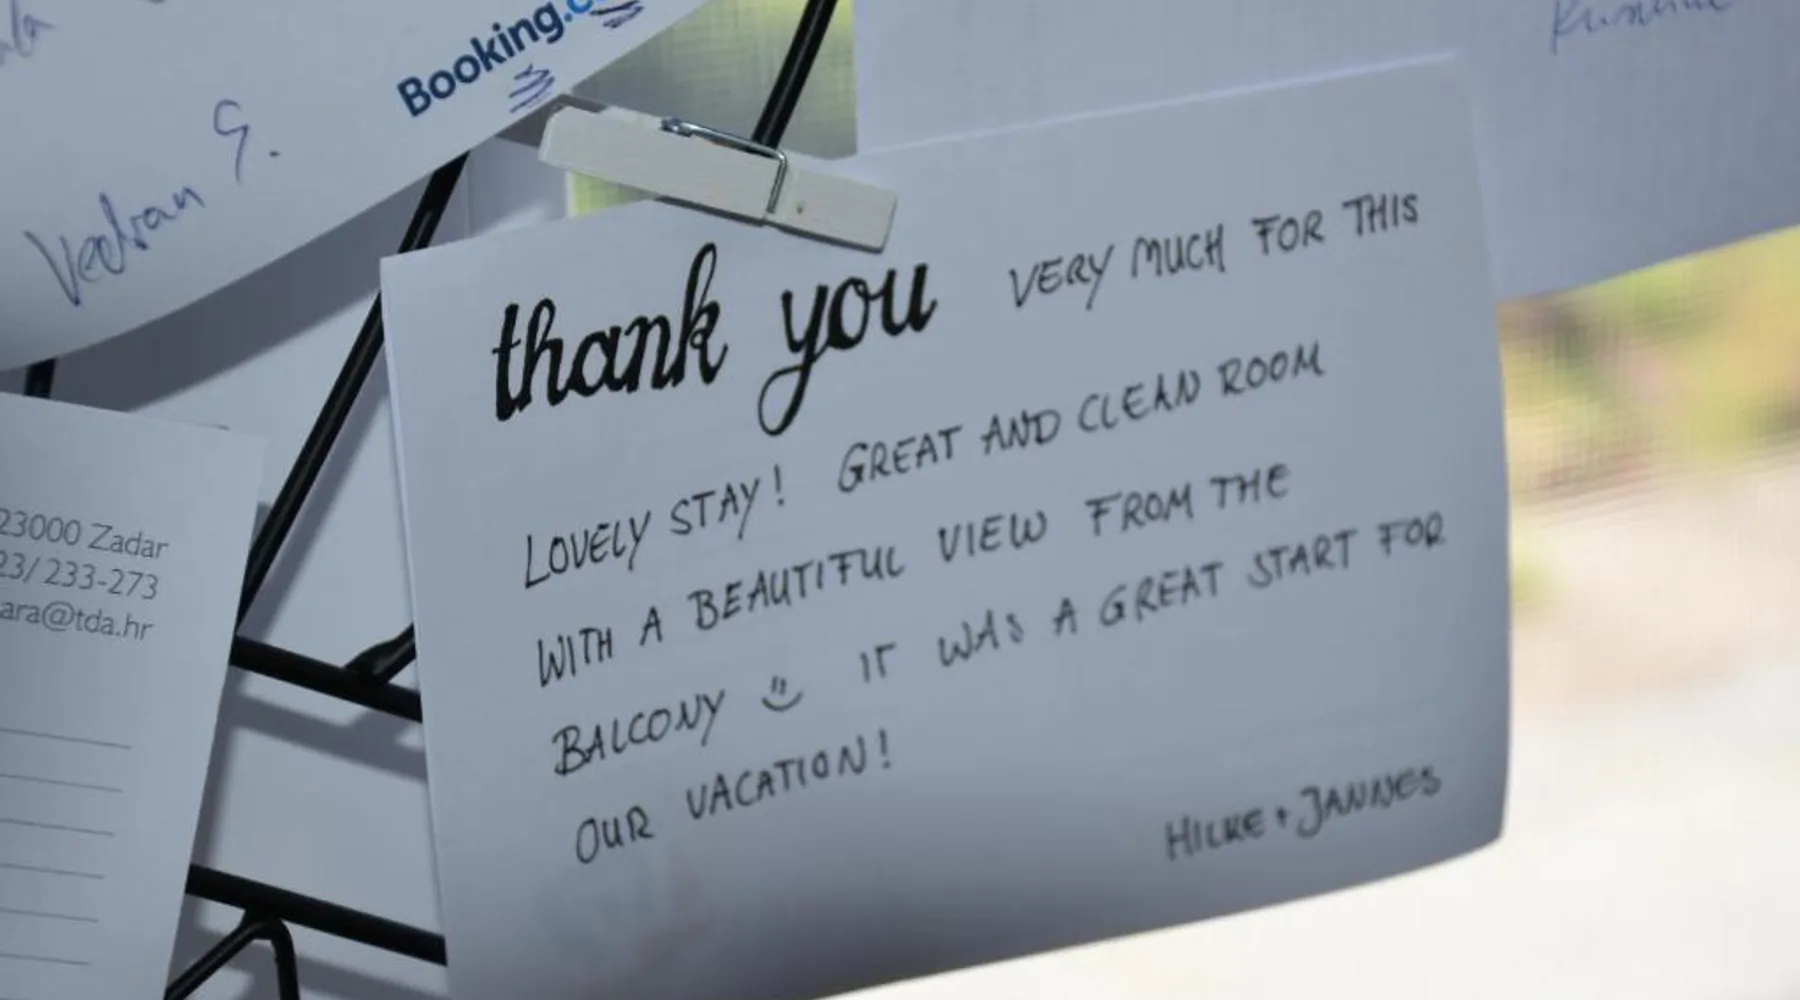 Booking.c
Vedran G.
thank you VERY MUCH FOR THIS
LOVELY STAY! GREAT AND CLEAN ROOM
WITH A BEAUTIFUL VIEW FROM THE
BALCONY IT WAS A GREAT START FOR
OUR VACATION!
HILKE + JANNES
23000 Zadar
23/ 233-273
ara@tda.hr